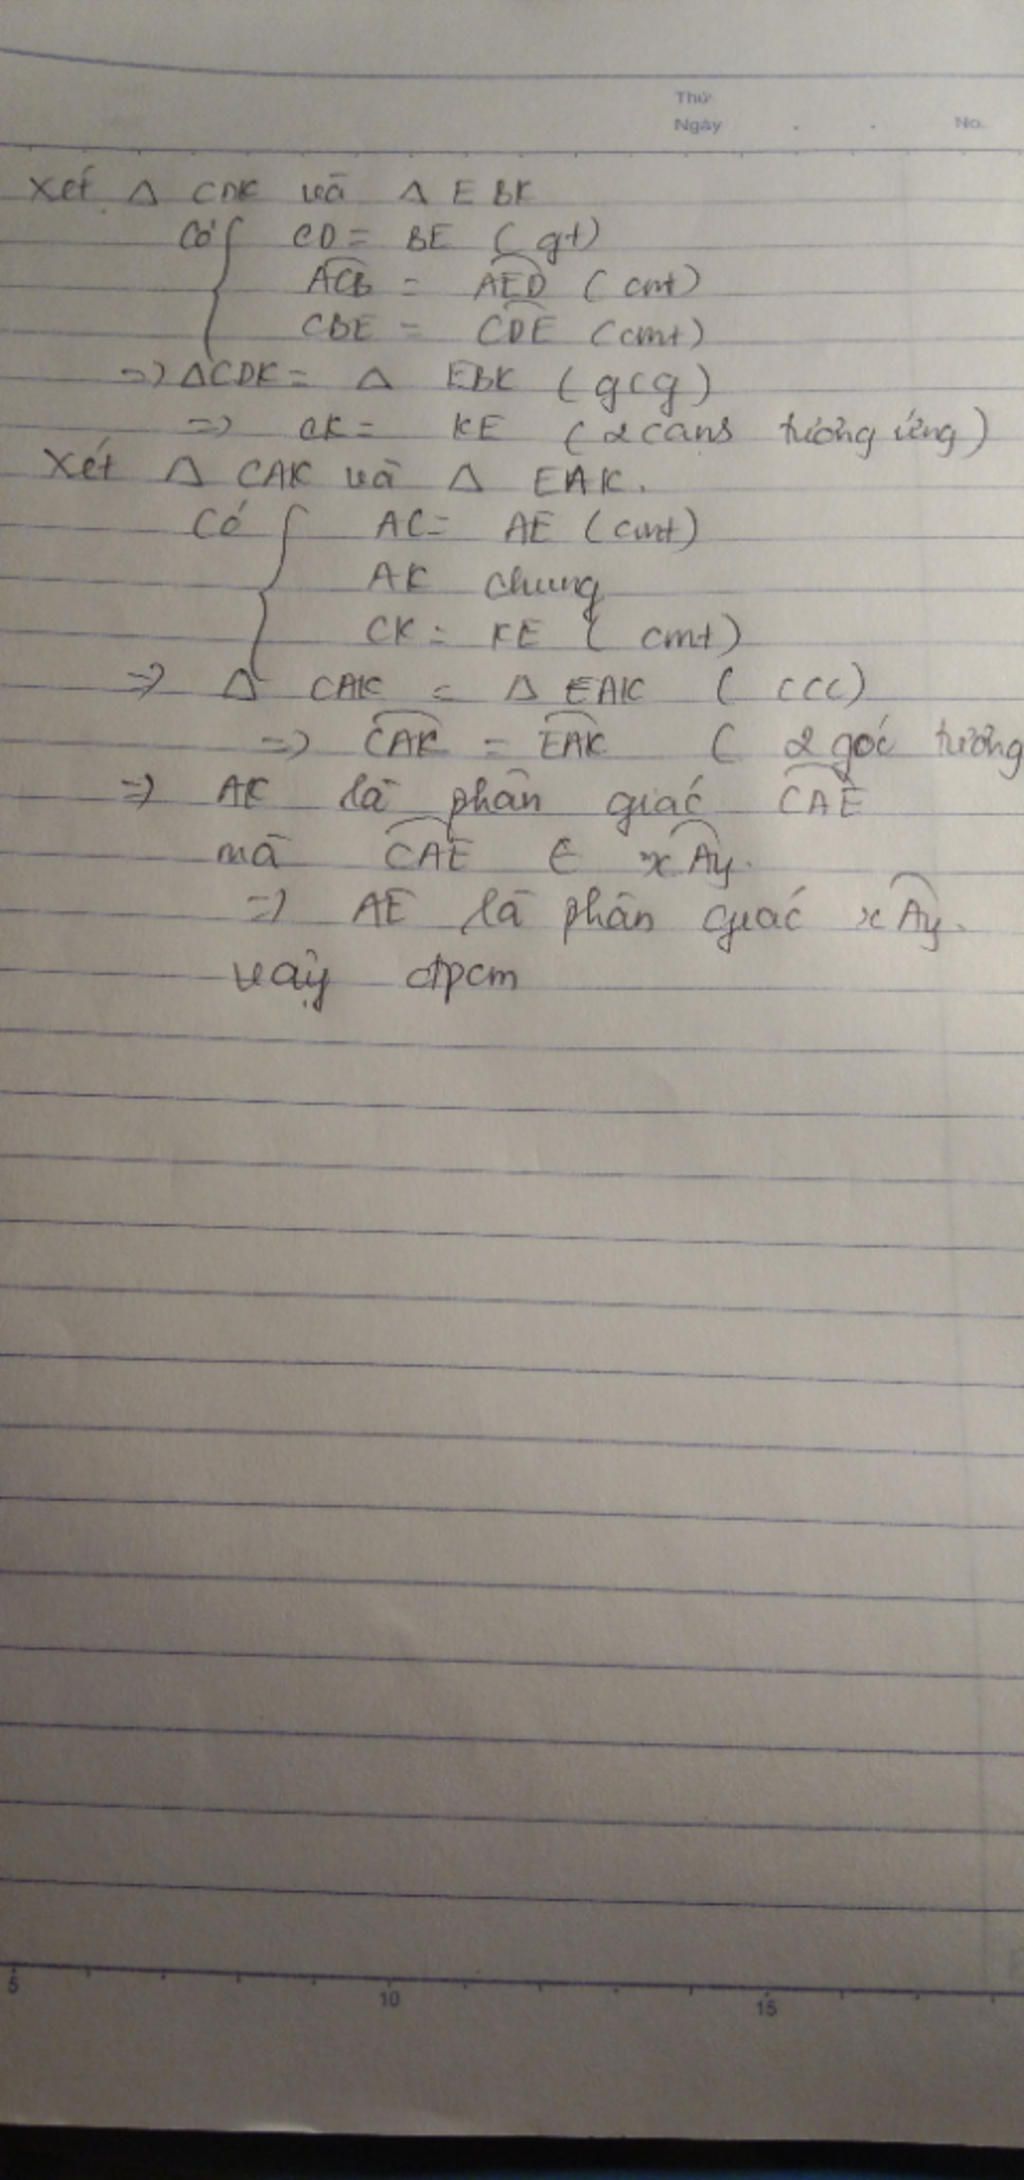 Thứ
Ngày . . No.
Xét Δ CDK và Δ EBK
Có { CD = BE (gt)
ACB = AED (cmt)
CBE = CDE (cmt)
=> ΔCDK = Δ EBK (gcg)
=> CK = KE (2 tương ứng)
Xét Δ CAK và Δ EAK.
Có { AC = AE (cmt)
AK chung
CK = KE (cmt)
=> Δ CAK = Δ EAK (ccc)
=> CAK = EAK (2 góc tương
=> AK là phân giác CAE
mà CAE ∈ xAy.
=> AE là phân giác xAy.
vậy đpcm
5 10 15